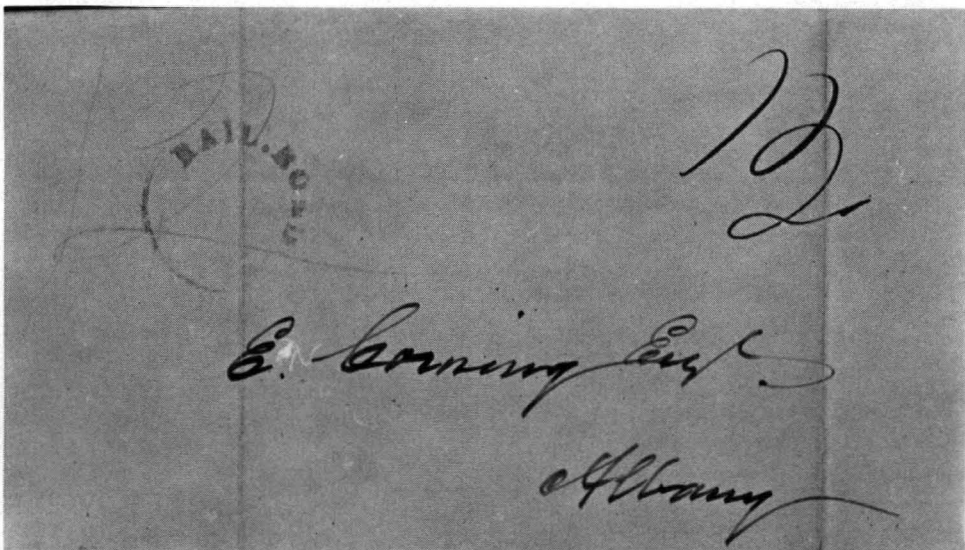 RAIL.
12½
E. Corning Esqr.
Albany